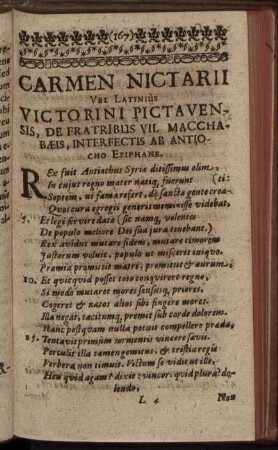 (167)
CARMEN NICTARII
VEL LATINIUS
VICTORINI PICTAVEN-
SIS, DE FRATRIBUS VII. MACCHA-
BÆIS, INTERFECTIS AB ANTIO-
CHO EPIPHANE.
REx fuit Antiochus Syriæ ditissimus olim,
In cujus regno mater natiq; fuerunt (ti:
Septem, ut fama refert, de sancta gente crea-
Qvos cura egregii genitoris meminisse videbat,
5. Et legi servire datæ (sic namq; volentes
De populo meliore Dei sua jura tenebant.)
Rex avidus mutare fidem, mutare timorem
Justorum voluit, populo ut misceret iniqvo.
Præmia promittit matri; promittit & aurum,
10. Et qvicqvid posset toto conqvirere regno,
Si modo mutaret mores sensusq; priores,
Cogeret & natos alios sibi fingere mores.
Illa negat, tacitumq; premit sub corde dolorem.
Hanc postqvam nulla potuit compellere præda,
15. Tentavit primum tormentis vincere sævis.
Pertulit illa tamen gemitus, & tristia regis
Verbera non timuit. Victum se vidit ut ille,
Heu qvid agam? dixit: vincor. qvid plura? do-
lendo,
L 4
Non